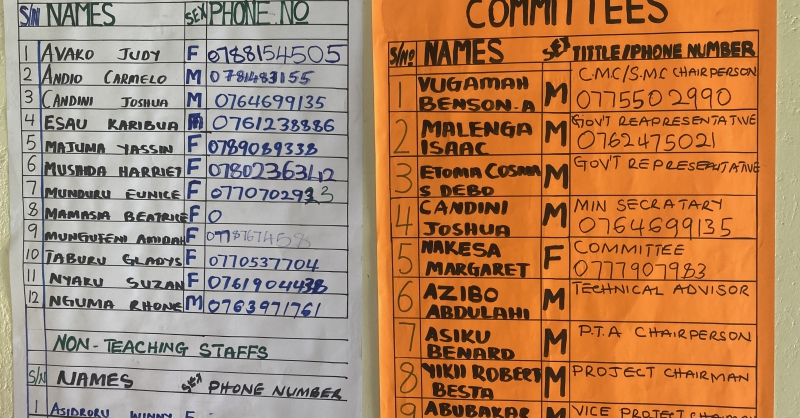 S/N NAMES SEX PHONE NO
1 AVAKO JUDY F 0788154505
2 ANDIO CARMELO M 0781483155
3 CANDINI JOSHUA M 0764699135
4 ESAU KARIBUA M 0761238886
5 MAJUMA YASSIN F 0789089338
6 MUSHIDA HARRIET F 0780236342
7 MUNDURU EUNICE F 0770702923
8 MAMASIA BEATRICE F 0
9 MUNGUFENI F
10 TABURU GLADYS F 0770537704
11 NYARU SUZAN F 0761904438
12 NGUMA RHONE M 0763971761
NON-TEACHING STAFFS
S/N NAMES SEX PHONE NUMBER
1 ASIDRORU WINNY F
COMMITTEES
S/No NAMES SEX TITTLE/PHONE NUMBER
1 VUGAMAH BENSON.A M C.M.C/S.M.C CHAIRPERSON
0775502990
2 MALENGA ISAAC M GOV'T REAPRESENTATIVE
0762475021
3 ETOMA COSMAS S DEBO M GOV'T REPRESENTATIVE
4 CANDINI JOSHUA M MIN SECRATARY
0764699135
5 NAKESA MARGARET F COMMITTEE
0777907983
6 AZIBO ABDULAHI M TECHNICAL ADVISOR
7 ASIKU BENARD M P.T.A CHAIRPERSON
8 YIKII ROBERT BESTA M PROJECT CHAIRMAN
9 ABUBAKAR M VICE PROJECT CHAIRMAN